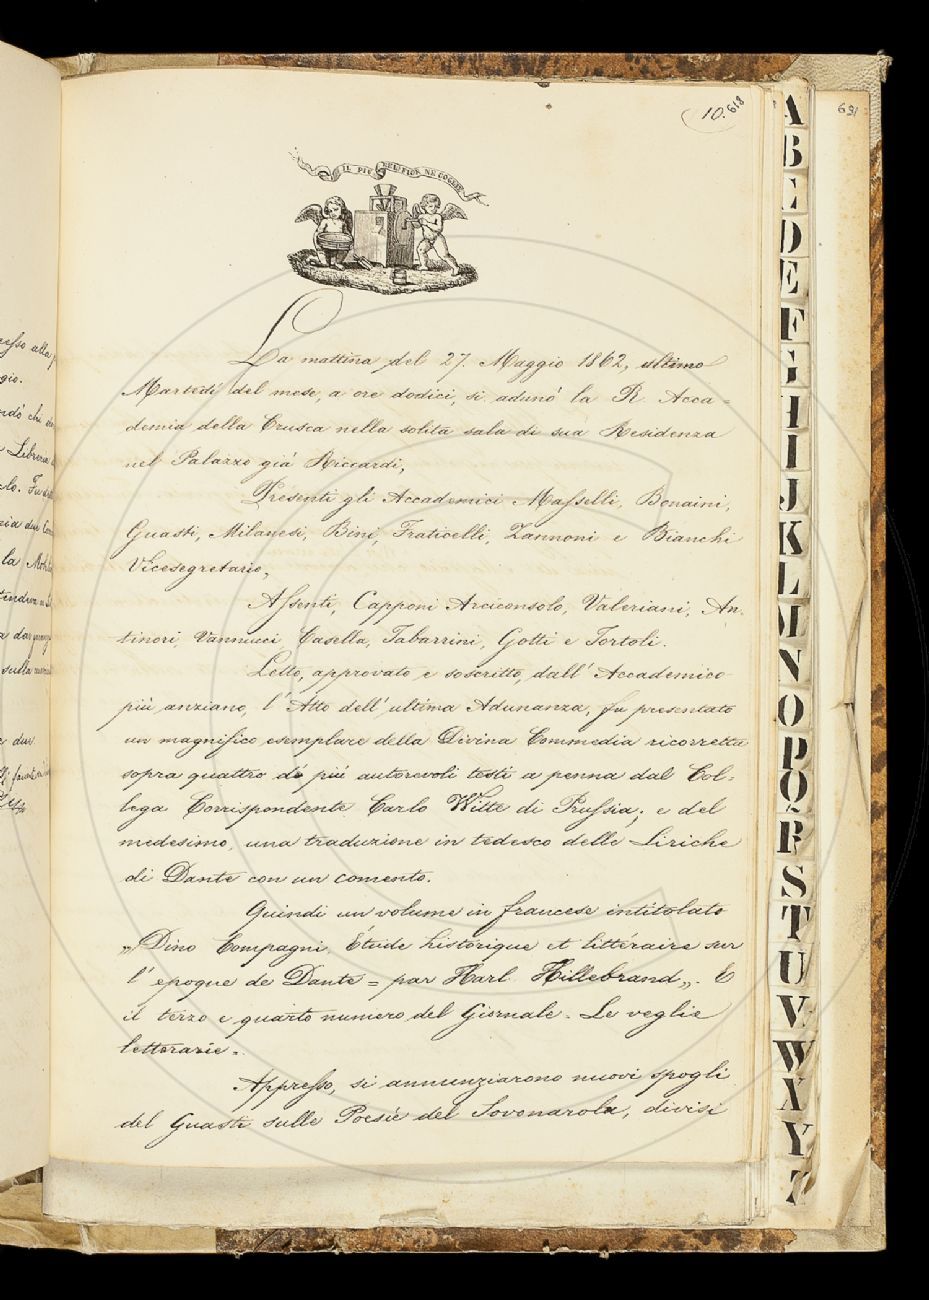 10. 618
691
IL PIÙ BEL FIOR NE COGLIE
La mattina del 27. Maggio 1862, ultimo
Martedì del mese, a ore dodici, si adunò la R. Acca=
demia della Crusca nella solita sala di sua Residenza
nel Palazzo già Riccardi,
Presenti gli Accademici Masselli, Bonaini,
Guasti, Milanesi, Bini, Fraticelli, Zannoni e Bianchi
Vicesegretario,
Assenti, Capponi Arciconsolo, Valeriani, An-
tinori, Vannucci Casella, Tabarrini, Gotti e Tortoli.
Letto, approvato e soscritto, dall' Accademico
più anziano, l' Atto dell' ultima Adunanza, fu presentato
un magnifico esemplare della Divina Commedia ricorretta
sopra quattro de' più autorevoli testi a penna dal Col=
lega Corrispondente Carlo Witte di Prussia; e del
medesimo, una traduzione in tedesco delle Liriche
di Dante con un comento.
Quindi un volume in francese intitolato
„Dino Compagni. Étude historique et littéraire sur
l' epoque de Dante = par Harl Hillebrand„. E
il terzo e quarto numero del Giornale = Le veglie
letterarie =.
Appresso, si annunziarono nuovi spogli
del Guasti sulle Poesie del Savonarola, divisi
A
B
C
D
E
F
G
H
I
J
K
L
M
N
O
P
Q
R
S
T
U
V
W
X
Y
Z